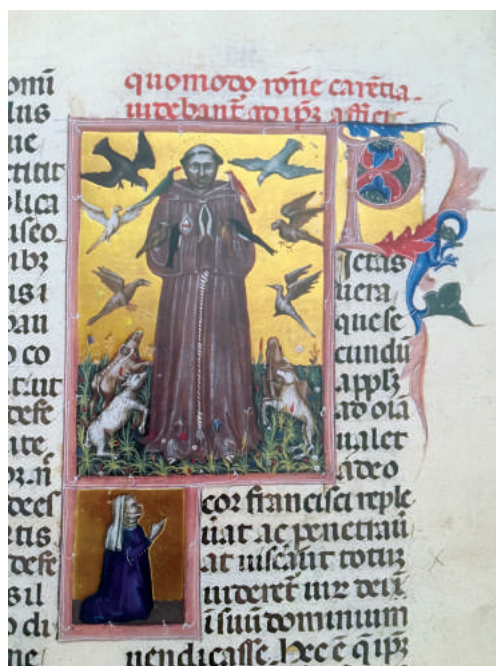 omĩ
lus
ue
ctitit
plica
useo
ibz
us i
o co
t. ut
defe
ite
dees
rtis
defe
s il
o di
ne
quomodo rõne carẽtia
uidebant̃ ad ipz affici
P
ietas
uera
que se
cundũ
applz
ad oĩa
ualet
ãdeo
cor francisci reple
uãt ac penetrauĩ
at ut totũ
uideret̃ uir dei
i suũ dominium
uendicasse. hec ẽ q ipz